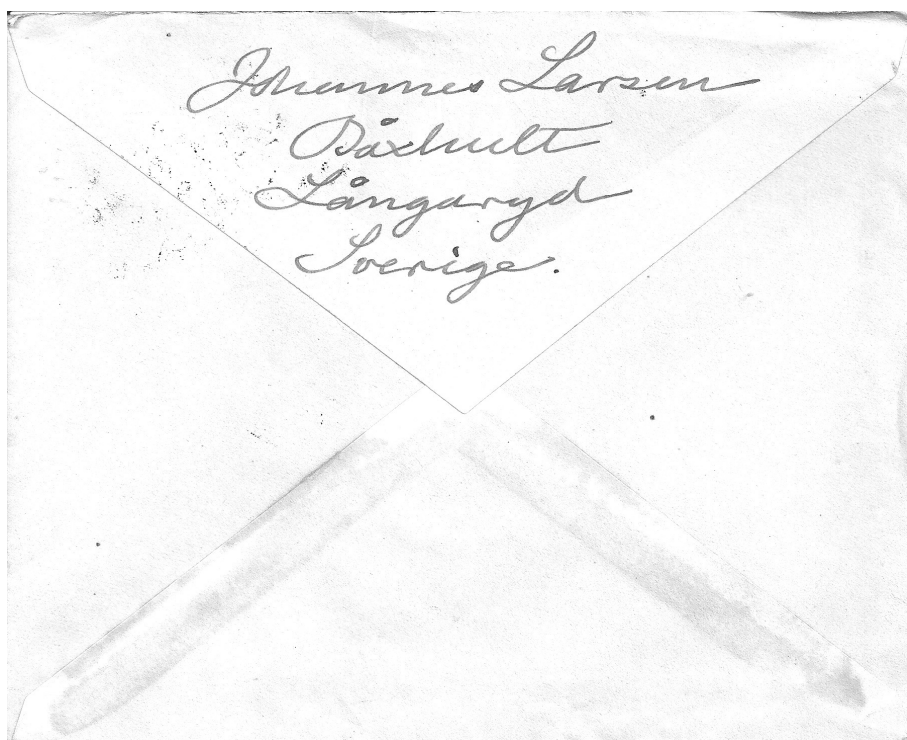 Johannes Larsen
Båxhult
Långaryd
Sverige.